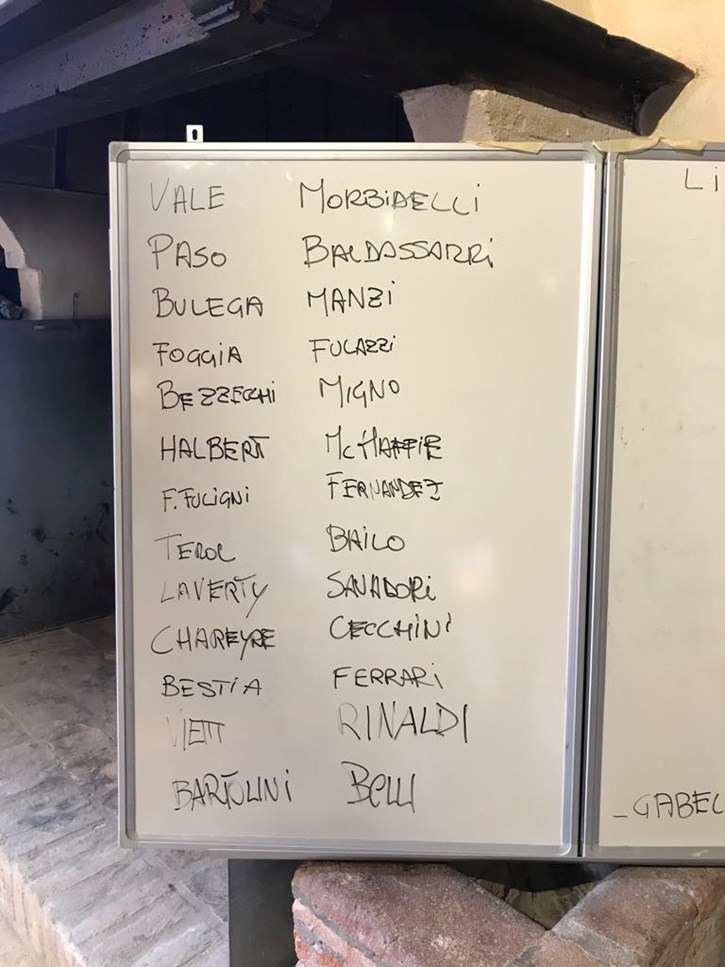 VALE MORBIDELLI
PASO BALDASSARRI
BULEGA MANZI
FOGGIA FULAZZI
BEZZECCHI MIGNO
HALBERT MCHAFFIE
F. FULIGNI FERNANDEZ
TEROL BAILO
LAVERTY SAVADORI
CHAREYRE CECCHINI
BESTIA FERRARI
VIETTI RINALDI
BARTOLINI BELLI
LI
-GABEL